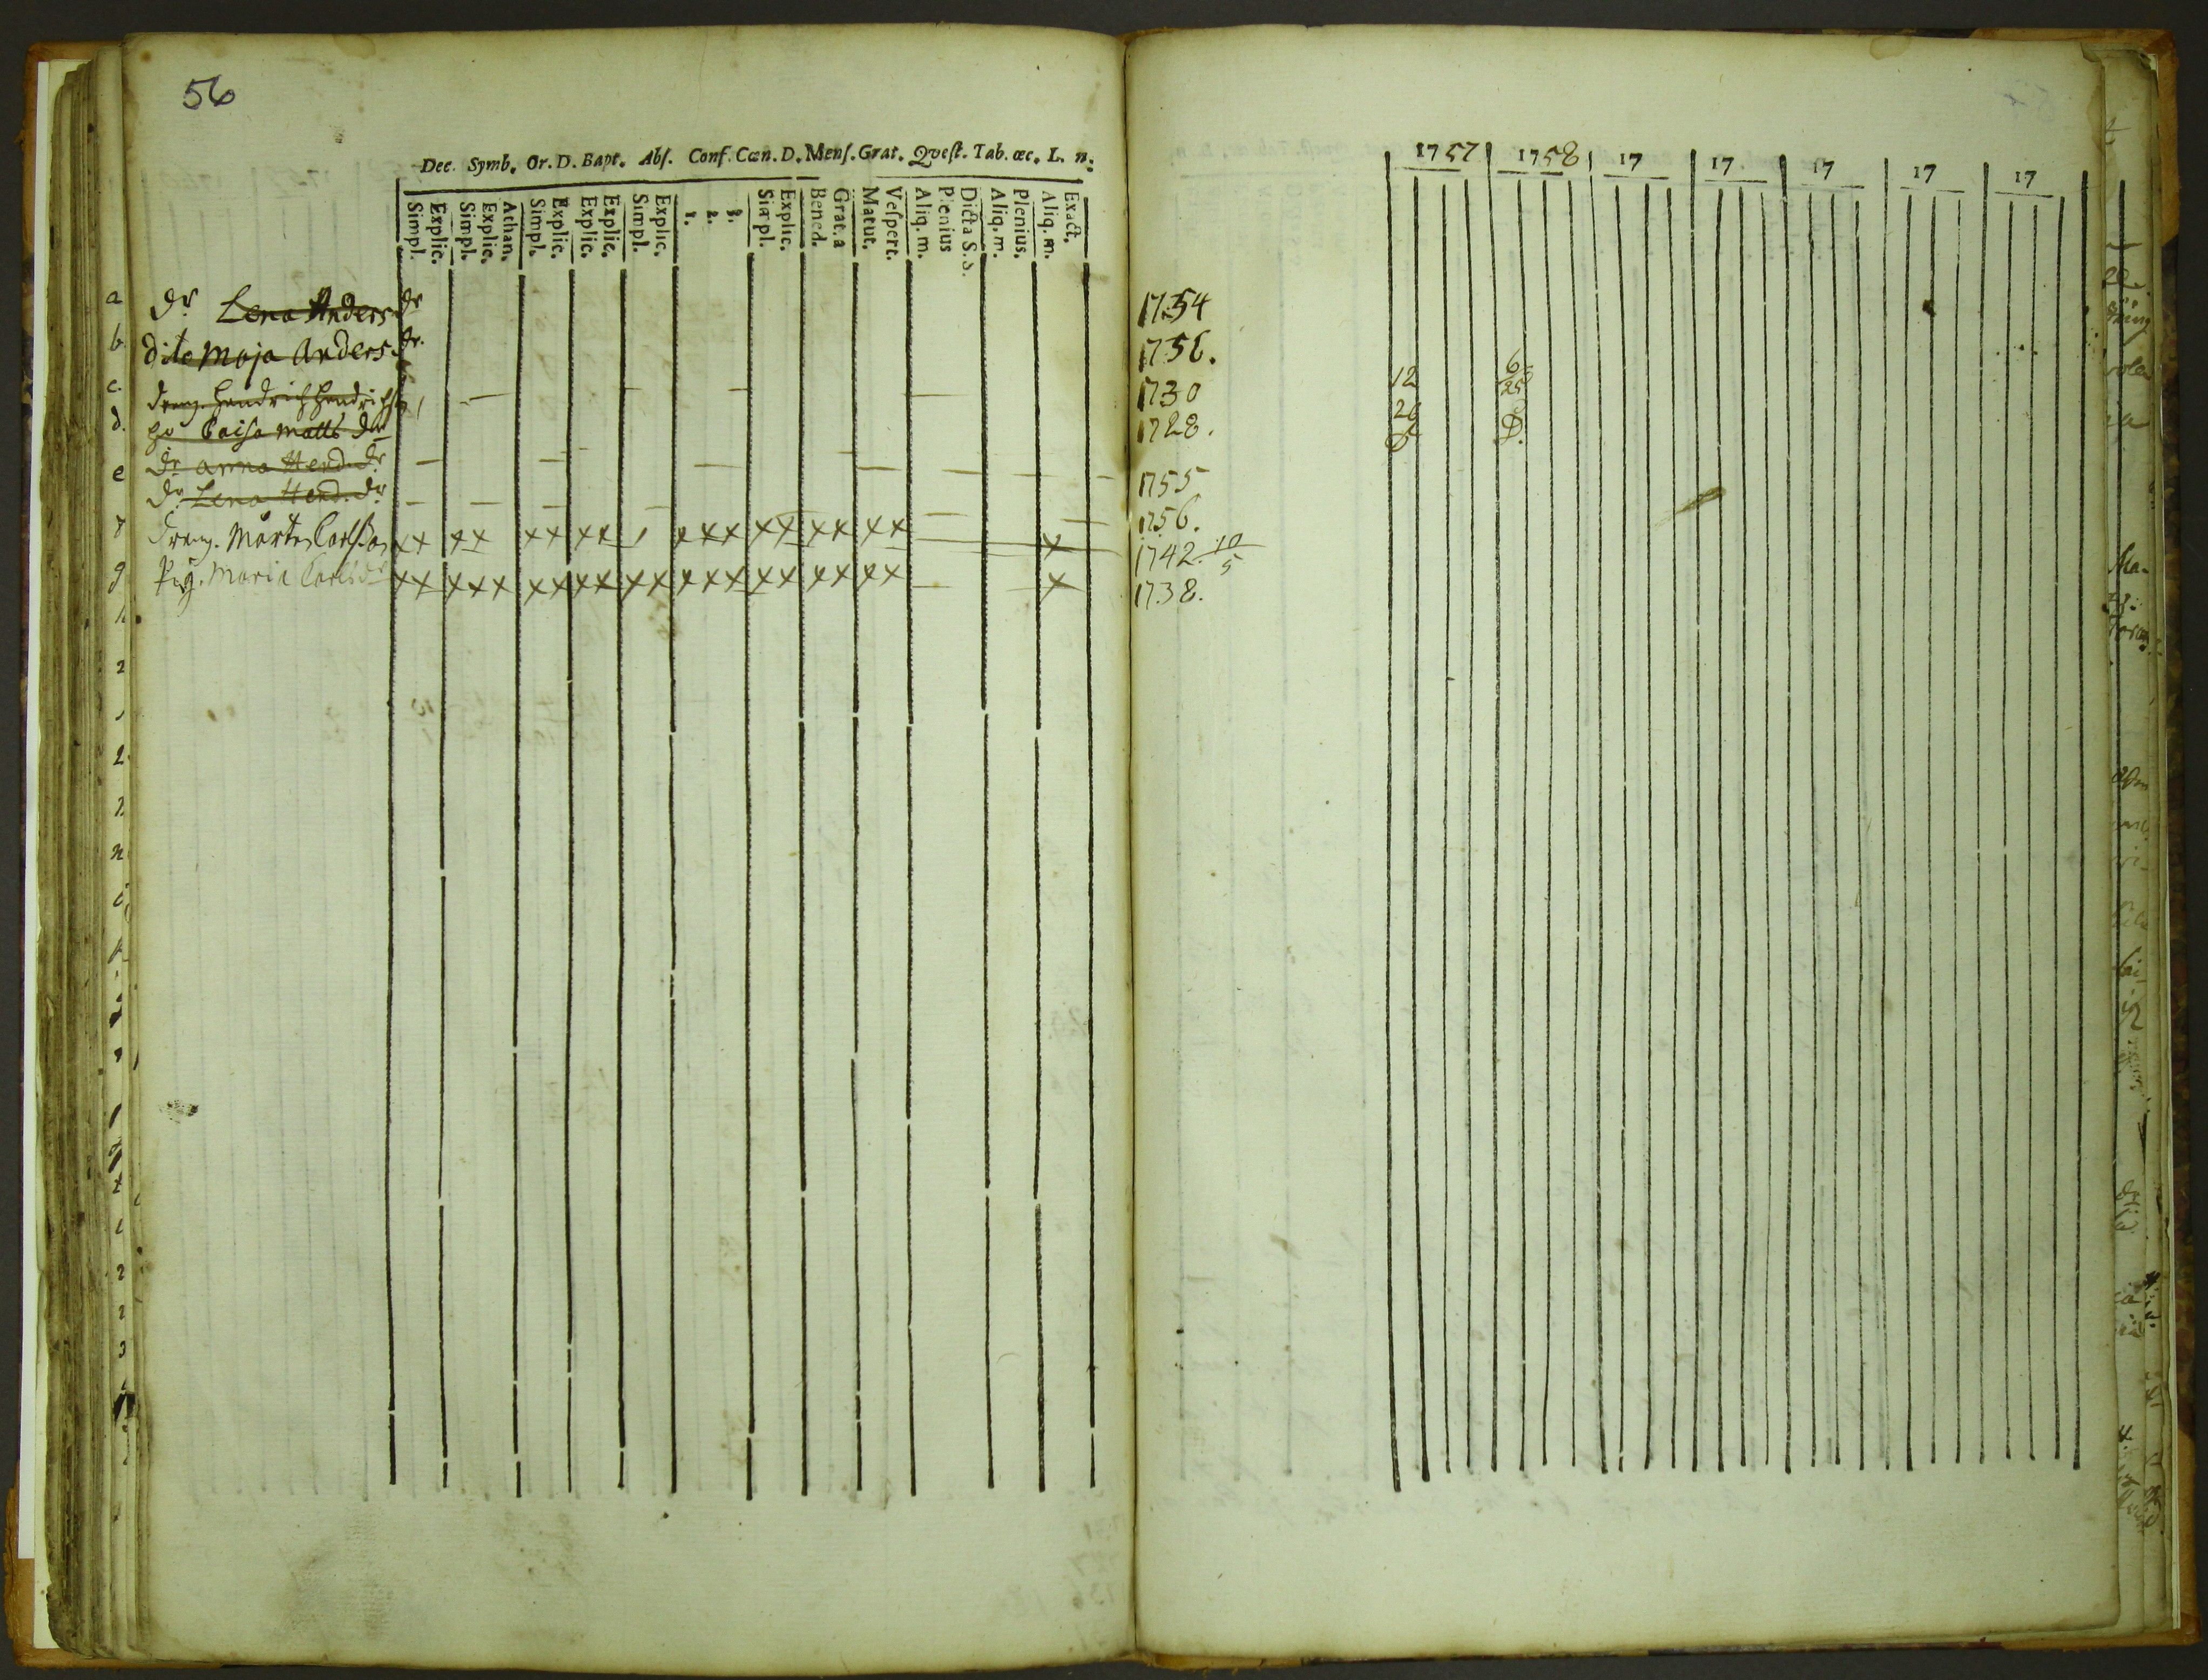 56
Dec. Symb. Or. D. Bapt. Abs. Conf. Cœn. D. Mens. Grat. Qvest. Tab. œc. L. n.
Simpl. Explic. Simpl. Explic. Athan. Simpl. Explic. Explic. Explic. Simpl. Explic. 1. 2. 3. Simpl. Explic. Bened. Grat. a Matut. Vespert. Aliq. m. Plenius Dicta S. S. Aliq. m. Plenius. Aliq. m. Exact.
1757 1758 17 17 17 17 17
a dr Lena Anders dr 1754
b dito Maja Anders. dr. 1756.
c dreng. Hendrich Hendrichs 1730 12 6 25
d. ho Caisa Matts dr 1728. 26
e dr Anna Hend. dr 1755
dr Lena Hend. dr 1756.
dreng. Mårten Carlson ×× ×× ×× ×× ××× ×× ×× ×× × 1742. 10 5
g Pig. Maria Carlsdr ×× ××× ×× ×× ×× ××× ×× ×× ×× × 1738.